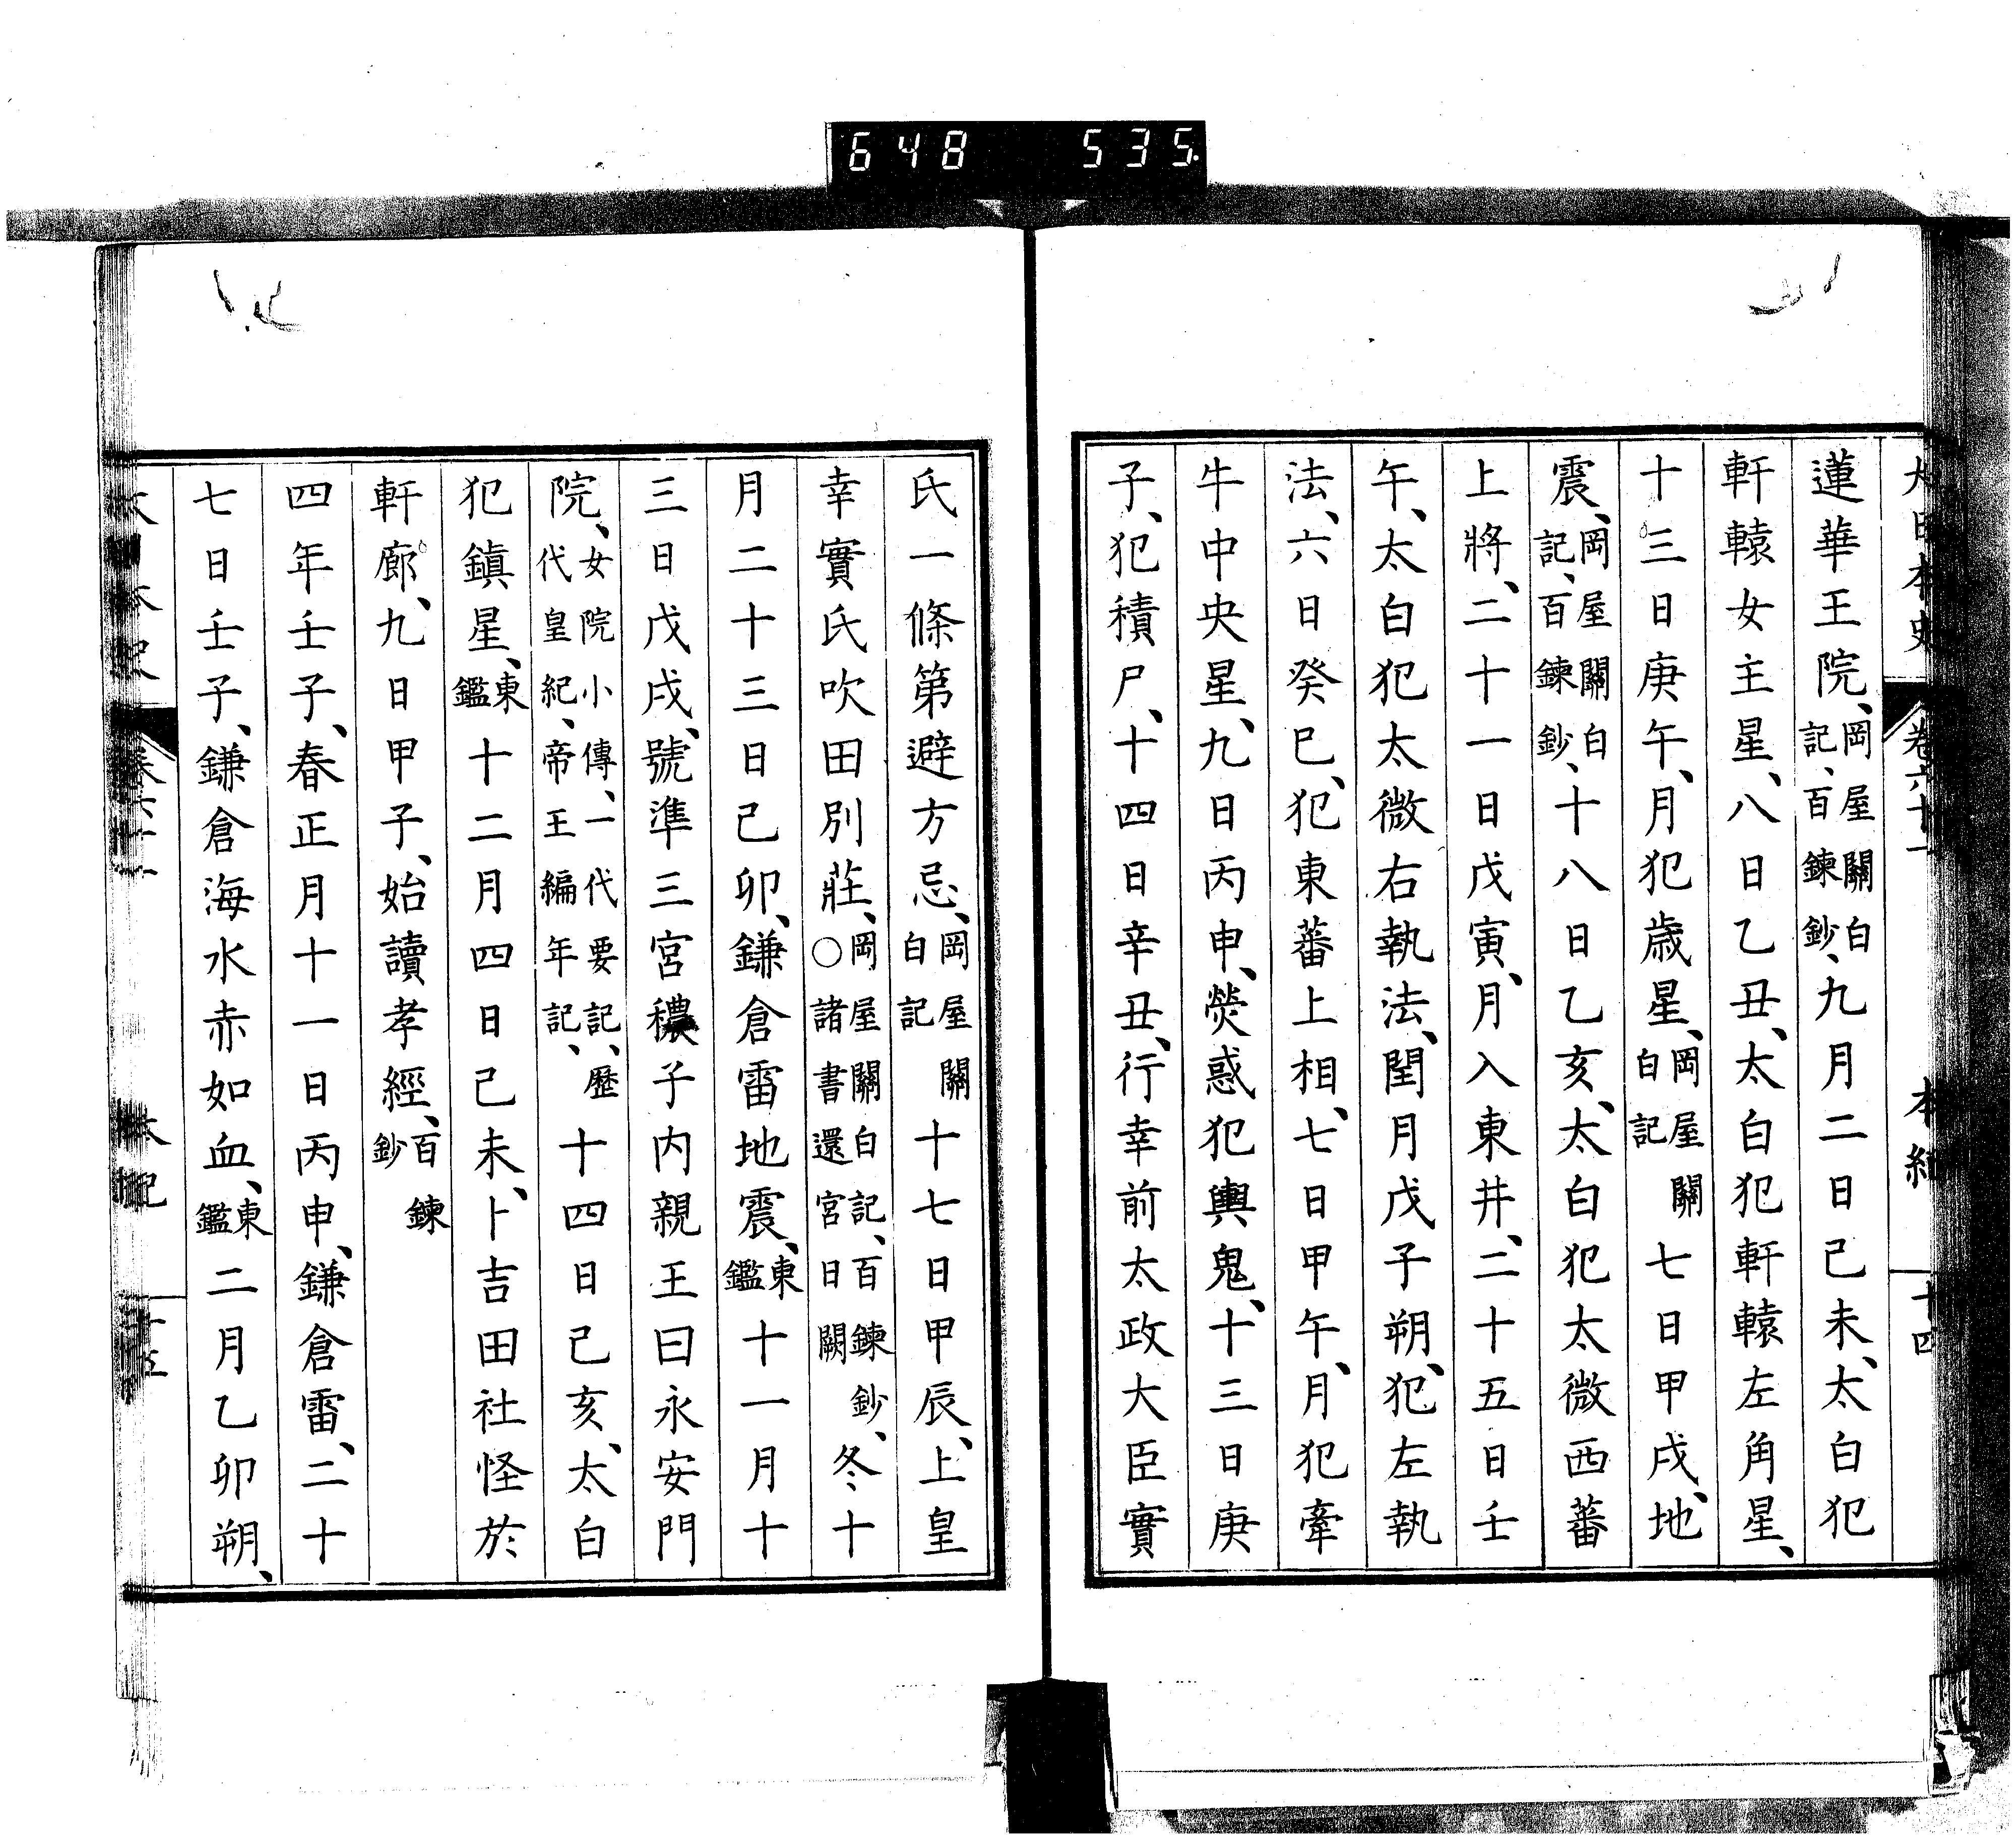 648 535
大日本史 卷六十一 本紀 十四
蓮華王院、岡屋關白記、百鍊鈔、九月二日己未、太白犯
軒轅女主星、八日乙丑、太白犯軒轅左角星、
十三日庚午、月犯歳星、岡屋關白記七日甲戌、地
震、岡屋關白記、百鍊鈔、十八日乙亥、太白犯太微西蕃
上將、二十一日戊寅、月入東井、二十五日壬
午、太白犯太微右執法、閏月戊子朔、犯左執
法、六日癸巳、犯東蕃上相、七日甲午、月犯牽
牛中央星、九日丙申、熒惑犯輿鬼、十三日庚
子、犯積尸、十四日辛丑、行幸前太政大臣實
氏一條第避方忌、岡屋關白記十七日甲辰、上皇
幸實氏吹田別莊、岡屋關白記、百鍊鈔、○諸書還宮日闕冬十
月二十三日己卯、鎌倉雷地震、東鑑十一月十
三日戊戌、號準三宮穠子内親王曰永安門
院、女院小傳、一代要記、歷代皇紀、帝王編年記、十四日己亥、太白
犯鎮星、東鑑十二月四日己未、卜吉田社怪於
軒廊、九日甲子、始讀孝經、百鍊鈔
四年壬子、春正月十一日丙申、鎌倉雷、二十
七日壬子、鎌倉海水赤如血、東鑑二月乙卯朔、
本紀